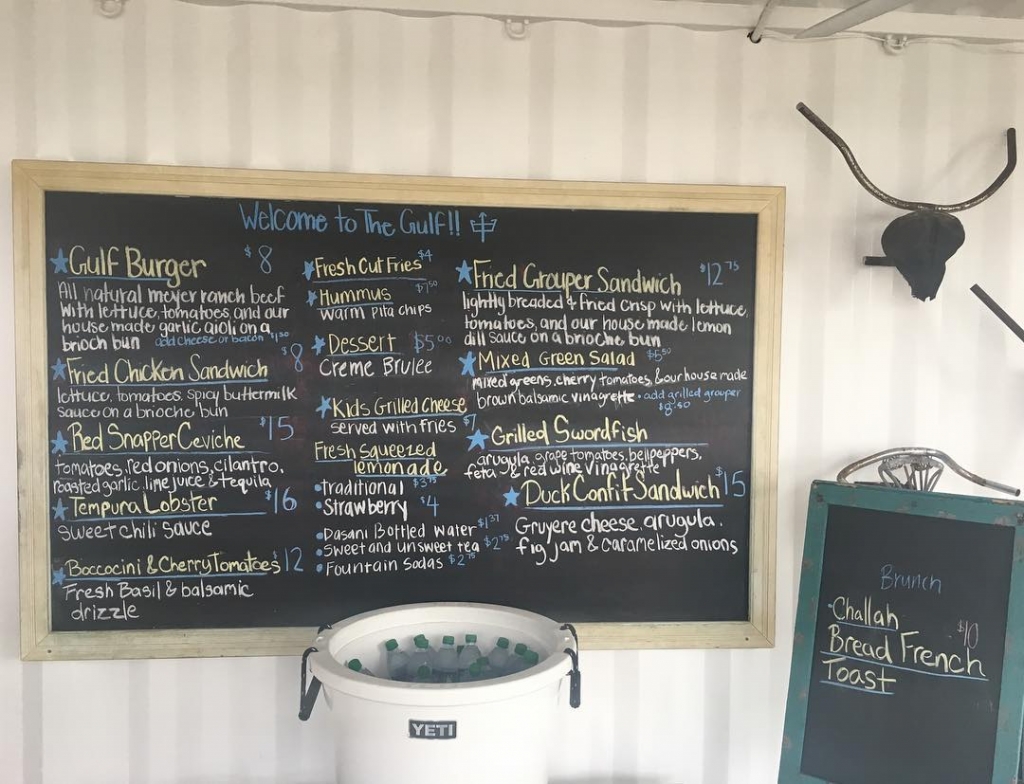 Welcome to The Gulf!!
Gulf Burger $8
All natural meyer ranch beef
with lettuce, tomatoes, and our
house made garlic aioli on a
brioch bun add cheese or bacon $1.50
Fried Chicken Sandwich $8
lettuce, tomatoes, spicy buttermilk
sauce on a brioche bun
Red Snapper Ceviche $15
tomatoes, red onions, cilantro,
roasted garlic, lime juice & tequila
Tempura Lobster $16
Sweet chili sauce
Boccocini & Cherry Tomatoes $12
Fresh Basil & balsamic
drizzle
Fresh Cut Fries $4
Hummus $7.50
warm pita chips
Dessert $5.00
Creme Brulee
Kids Grilled Cheese
served with fries $7
Fresh squeezed
lemonade
•traditional $3.75
•Strawberry $4
•Dasani Bottled Water $1.37
•Sweet and unsweet tea $2.75
•Fountain Sodas $2.75
Fried Grouper Sandwich $12.75
lightly breaded & fried crisp with lettuce,
tomatoes, and our house made lemon
dill sauce on a brioche bun
Mixed Green Salad $5.50
mixed greens, cherry tomatoes, & our house made
brown balsamic vinagrette • add grilled grouper
$8.50
Grilled Swordfish
arugula, grape tomatoes, bellpeppers,
feta & red wine vinagrette
Duck Confit Sandwich $15
Gruyere cheese, arugula,
fig jam & caramelized onions
YETI
Brunch
•Challah
Bread French $10
Toast